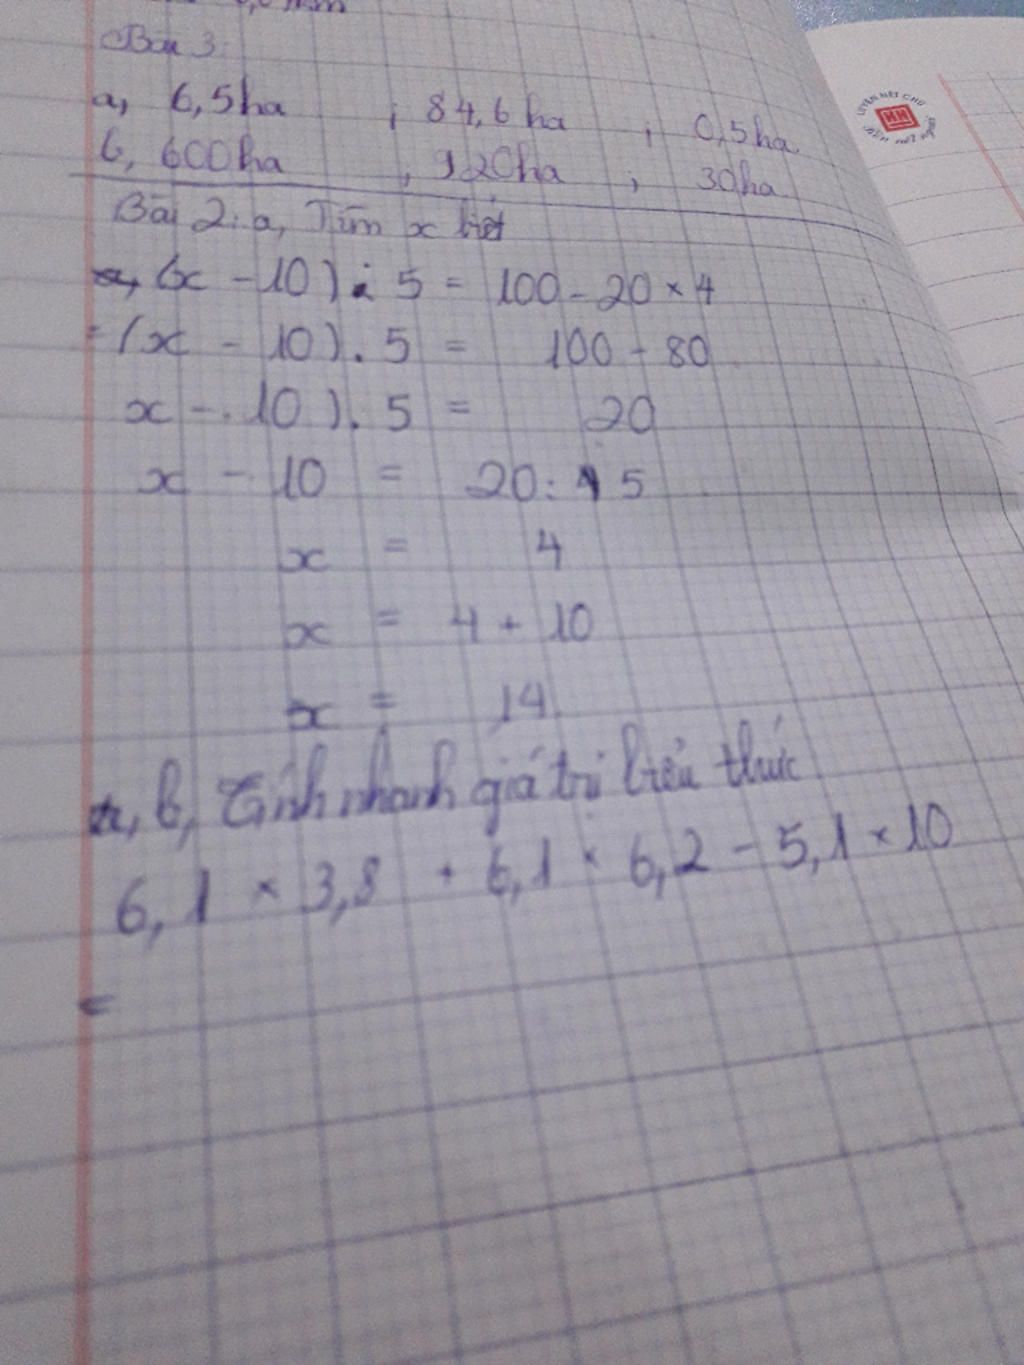 Bài 3:
a, 6,5ha ; 84,6ha ; 0,5ha
b, 600ha ; 920ha ; 30ha
Bài 2: a, Tìm x biết
(x - 10) . 5 = 100 - 20 × 4
= (x - 10) . 5 = 100 - 80
x - 10) . 5 = 20
x - 10 = 20 : 5
x = 4
x = 4 + 10
x = 14
b, Tính nhanh giá trị biểu thức
6,1 × 3,8 + 6,1 × 6,2 - 5,1 × 10
=